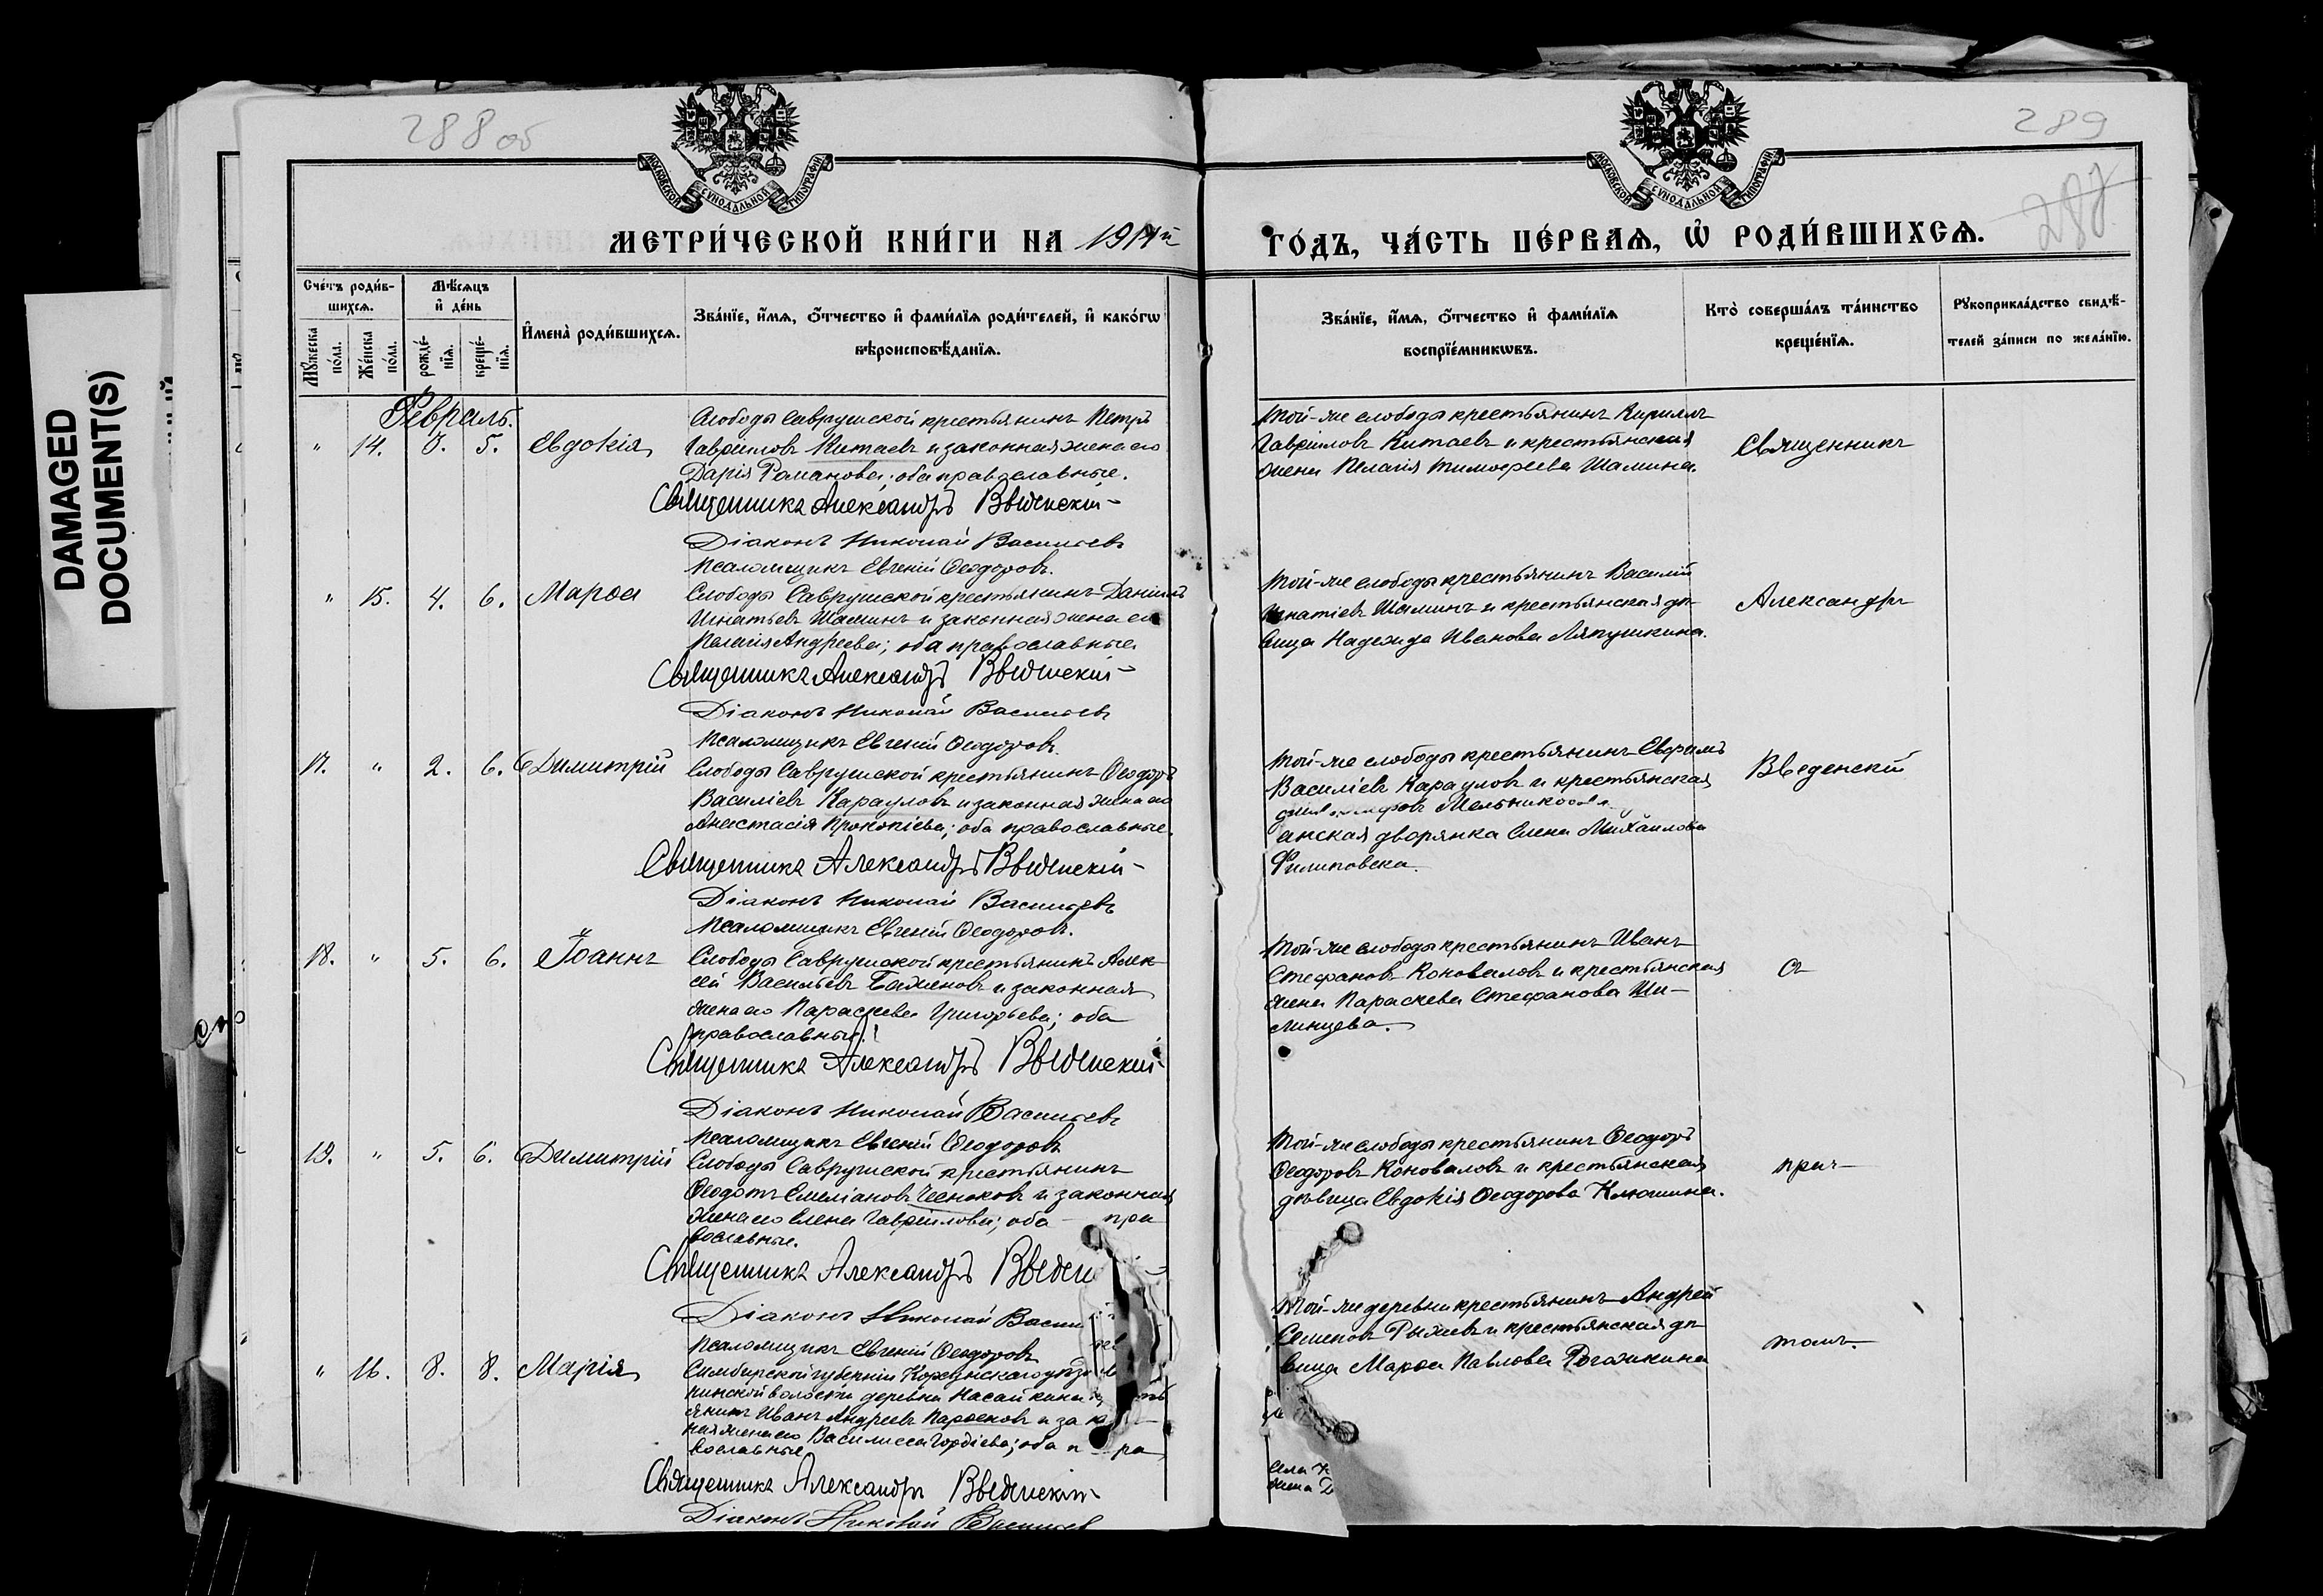 DAMAGED
DOCUMENT(S)
288 об
289
287
МОСКОВСКОЙ СУНОДАЛЬНОЙ ТИПОГРАФІИ
МОСКОВСКОЙ СУНОДАЛЬНОЙ ТИПОГРАФІИ
МЕТРИ́ЧЕСКОЙ КНИ́ГИ НА 1914й
ГО́ДЪ, ЧА́СТЬ ПЕ́РВАѦ, Ѡ҆ РОДИ́ВШИХСѦ.
Сче́тъ роди́в-
шихсѧ.
Мѣ́сѧцъ
и҆ де́нь
Мꙋ́жеска
по́ла.
Же́нска
по́ла.
рожде́-
нїѧ.
креще́-
нїѧ.
И҆мена̀ роди́вшихсѧ.
Зва́нїе, и҆́мѧ, ѻ҆́тчество и҆ фами́лїѧ роди́телей, и҆ како́гѡ
вѣроисповѣ́данїѧ.
Зва́нїе, и҆́мѧ, ѻ҆́тчество и҆ фами́лїѧ
воспрїе́мникѡвъ.
Кто̀ соверша́лъ та́инство
креще́нїѧ.
Рꙋкоприкла́дство свидѣ́-
телей за́писи по жела́нїю.
Февраль.
" 14. 3. 5. Евдокія
Слободы Саврушской крестьянинъ Петръ
Гавріиловъ Китаевъ и законная жена его
Дарія Романова; оба православные.
Священникъ Александръ Введенскій
Діаконъ Николай Васильевъ
Псаломщикъ Евгеній Ѳеодоровъ.
Той-же слободы крестьянинъ Кириллъ
Гавріиловъ Китаевъ и крестьянская
жена Пелагія Тимофеева Шамина
Священникъ
" 15. 4. 6. Марѳа
Слободы Саврушской крестьянинъ Даніилъ
Игнатьевъ Шаминъ и законная жена его
Пелагія Андреева; оба православные
Священникъ Александръ Введенскій
Діаконъ Николай Васильевъ
Псаломщикъ Евгеній Ѳеодоровъ.
Той-же слободы крестьянинъ Василій
Игнатіевъ Шаминъ и крестьянская дѣ-
вица Надежда Иванова Ляпушкина.
Александръ
17. " 2. 6. Димитрій
Слободы Саврушской крестьянинъ Ѳеодоръ
Василіевъ Карауловъ и законная жена его
Анастасія Прокопіева; оба православные.
Священникъ Александръ Введенскій
Діаконъ Николай Васильевъ
Псаломщикъ Евгеній Ѳеодоровъ.
Той-же слободы крестьянинъ
Василіевъ Карауловъ и крестьянская
Мельникова
анская дворянка Елена Михайлова
Филиповска.
Введенскій
18. " 5. 6. Іоаннъ
Слободы Саврушской крестьянинъ Алек-
сей Васильевъ Баженовъ и законная
жена его Параскева Григорьева; оба
православные.
Священникъ Александръ Введенскій
Діаконъ Николай Васильевъ
Псаломщикъ Евгеній Ѳеодоровъ
Той-же слободы крестьянинъ Иванъ
Стефановъ Коноваловъ и крестьянская
жена Параскева Стефанова Ши-
линцева.
съ
19. " 5. 6. Димитрій
Слободы Саврушской крестьянинъ
Ѳеодотъ Емеліановъ Чесноковъ и законная
жена его Елена Гавріилова; оба пра
вославные.
Священникъ Александръ Введен
Діаконъ Николай Васил
Псаломщикъ Евгеній Ѳеодоровъ
Той-же слободы крестьянинъ Ѳеодоръ
Ѳеодоровъ Коноваловъ и крестьянская
дѣвица Евдокія Ѳеодорова Клюшина.
прич-
" 16. 8. 8. Марія
Симбирской губерніи Корсунскаго уѣзда
пинской волости деревни Насайкина
янинъ Иванъ Андреевъ Парѳеновъ и зако
ная жена его Василисса Гордіева; оба пра
вославные
Священникъ Александръ Введенскій
Діаконъ Николай Васильев
Той-же деревни крестьянинъ Андрей
Семеновъ Рыжевъ и крестьянская дѣ-
вица Марѳа Павлова Рогожкина
томъ.
Села
жена